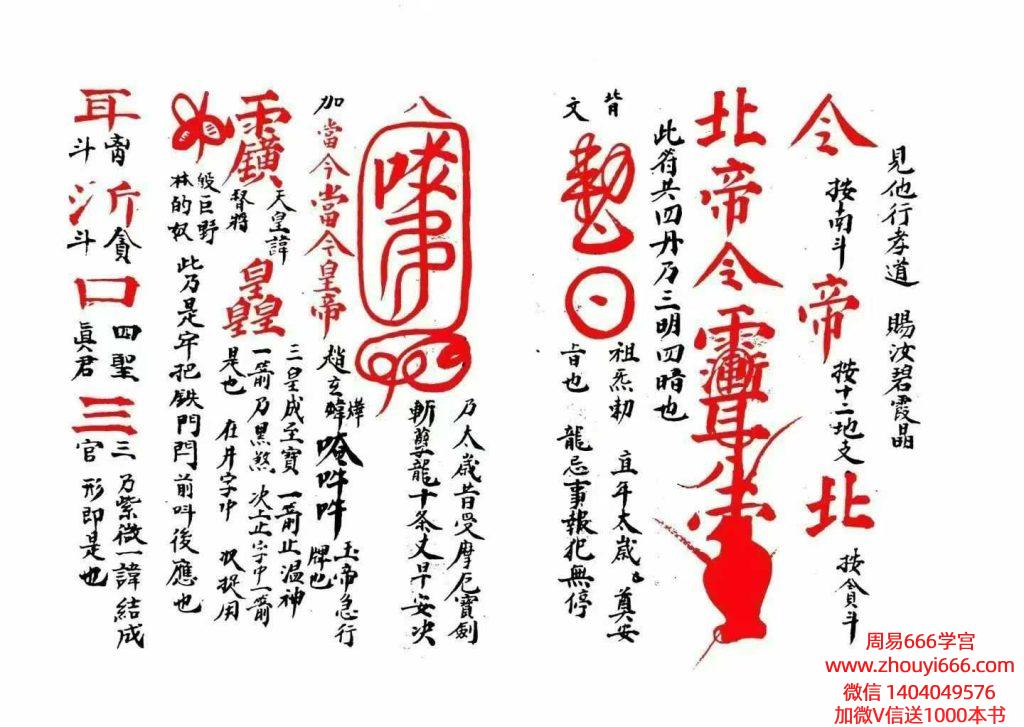 見他行孝道　賜汝碧霞晶
令
按南斗
帝
按十二地支
北
按貪斗
北帝令
此符共四丹乃三明四暗也
背文
祖炁勅　直年太歲　真安
旨也　龍忌事報犯無停
八
乃太歲昔受摩厄寶劍
斬孽龍十条丈早安决
加
當今當今皇帝
趙玄
唵吽吽
玉帝急行
牌也
天皇諱
督將
皇皇皇
三皇成至寶　一箭止温神
一箭乃黑煞　次上止字中一箭
是也　在井字中　收捉用
般巨野
林的奴
此乃是牢把鉄門閂前叫後應也
耳
斗
沂
貪
斗
口
四聖
真君
三
三官
乃紫微一諱結成
形即是也
周易666学宫
www.zhouyi666.com
微信 1404049576
加微V信送1000本书